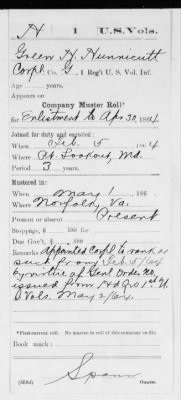 H 1 U.S. Vols.
Green H. Hunnicutt
Corpl, Co. G, 1 Reg't U. S. Vol. Inf.
Age years.
Appears on
Company Muster Roll*
for Enlistment to Apr 30, 1864
Joined for duty and enrolled:
When Feb. 5, 1864
Where Pt. Lookout, Md.
Period 3 years.
Mustered in:
When May 1, 186
Where Norfolk, Va.
Present or absent Present
Stoppage, $ 100 for
Due Gov't, $ 100 for
Remarks: Appointed Corpl to rank as
such from Feb. 5/64
by virtue of Genl Order No.
issued from Hd Qrs 1st U.
S Vols. May 2/64.
*First muster roll. No muster-in roll of this company on file
Book mark:
Spann
(358d) Copyist.